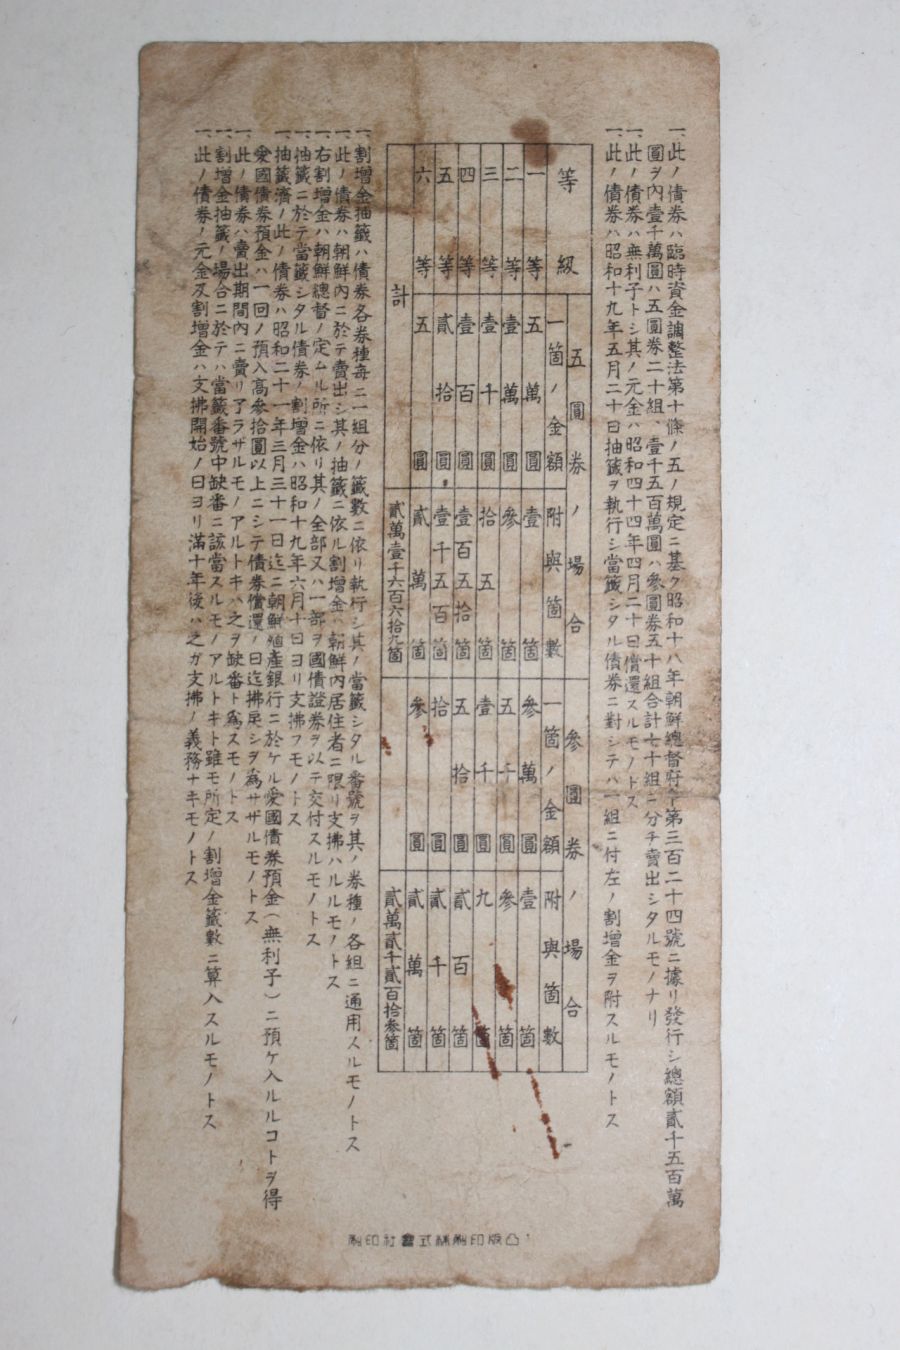 一、此ノ債券ハ臨時資金調整法第十條ノ五ノ規定ニ基ク昭和十八年朝鮮總督府令第三百二十四號ニ據リ發行シ總額貳千五百萬
圓ヲ內壹千萬圓ハ五圓券二十組、壹千五百萬圓ハ參圓券五十組合計七十組ニ分チ賣出シタルモノナリ
一、此ノ債券ハ無利子トシ其ノ元金ハ昭和四十四年四月二十日償還スルモノトス
一、此ノ債券ハ昭和十九年五月二十日抽籤ヲ執行シ當籤シタル債券ニ對シテハ一組ニ付左ノ割增金ヲ附スルモノトス
等級 五圓券ノ場合 參圓券ノ場合
一箇ノ金額 附與箇數 一箇ノ金額 附與箇數
一等 五萬圓 壹箇 參萬圓 壹箇
二等 壹萬圓 參箇 五千圓 參箇
三等 壹千圓 拾五箇 壹千圓 九箇
四等 壹百圓 壹百五拾箇 五拾圓 貳百箇
五等 貳拾圓 壹千五百箇 拾圓 貳千箇
六等 五圓 貳萬箇 參圓 貳萬箇
計 貳萬壹千六百六拾九箇 貳萬貳千貳百拾參箇
一、割增金抽籤ハ債券各券種每ニ一組分ノ籤數ニ依リ執行シ其ノ當籤シタル番號ヲ其ノ券種ノ各組ニ通用スルモノトス
一、此ノ債券ハ朝鮮內ニ於テ賣出シ其ノ抽籤ニ依ル割增金ハ朝鮮內居住者ニ限リ支拂ハルルモノトス
一、右割增金ハ朝鮮總督ノ定ムル所ニ依リ其ノ全部又ハ一部ヲ國債證券ヲ以テ交付スルモノトス
一、抽籤ニ於テ當籤シタル債券ノ割增金ハ昭和十九年六月十日ヨリ支拂フモノトス
一、抽籤濟ノ此ノ債券ハ昭和二十一年三月三十一日迄ニ朝鮮殖產銀行ニ於ケル愛國債券預金(無利子)ニ預ケ入ルルコトヲ得
愛國債券預金ハ一回ノ預入高參拾圓以上ニシテ債券償還ノ日迄拂戾シヲ爲サザルモノトス
一、此ノ債券ハ賣出期間內ニ賣リ了ラザルモノアルトキハ之ヲ缺番ト爲スモノトス
一、割增金抽籤ノ場合ニ於テハ當籤番號中缺番ニ該當スルモノアルトキト雖モ所定ノ割增金籤數ニ算入スルモノトス
一、此ノ債券ノ元金及割增金ハ支拂開始ノ日ヨリ滿十年後ハ之ガ支拂ノ義務ナキモノトス
凸版印刷株式會社印刷